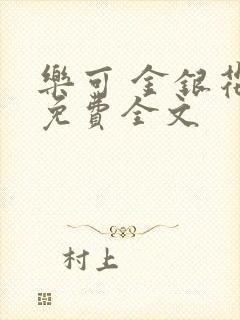 樂可 金銀花
免費全文
村上